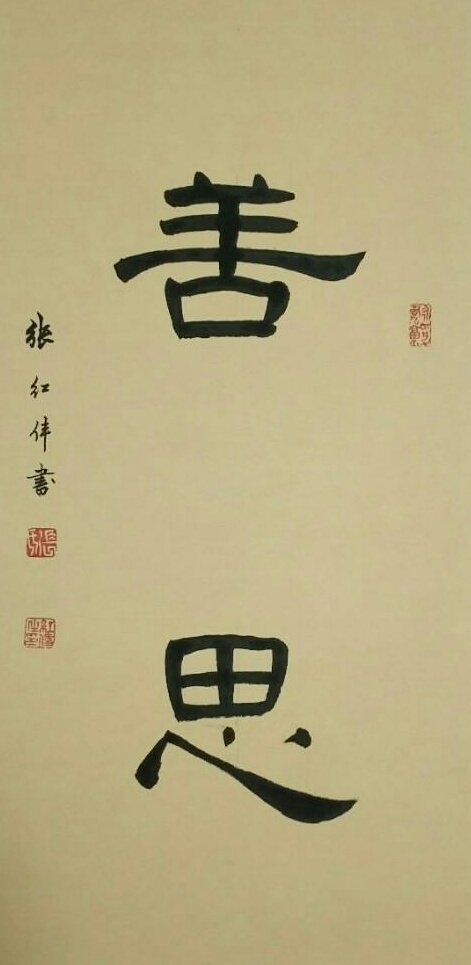 善思
張红伟書